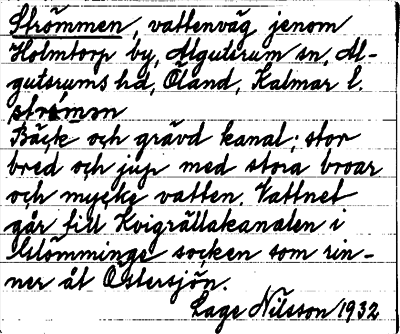 Strömmen, vattenväg jenom
Holmtorp by, Algutsrum sn, Al-
gutsrums hd, Öland, Kalmar l.
strömən
Bäck och grävd kanal; stor
bred och jup med stora broar
och mycke vatten. Vattnet
går till Kvigrällakanalen i
Glömminge socken som rin-
ner åt Östersjön.
Lage Nilsson 1932